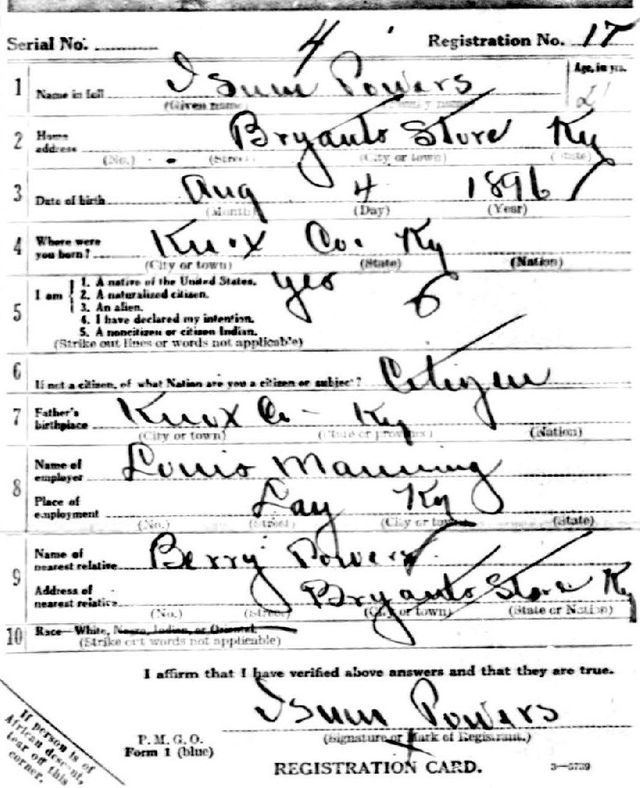 Serial No. 4 Registration No. 17
1 Name in full Isum Powers Age, in yrs.
(Given name) (Family name) 21
2 Home address Bryants Store Ky
(No.) (Street) (City or town) (State)
3 Date of birth Aug 4 1896
(Month) (Day) (Year)
4 Where were you born? Knox Co. Ky
(City or town) (State) (Nation)
5 I am 1. A native of the United States. yes
2. A naturalized citizen.
3. An alien.
4. I have declared my intention.
5. A noncitizen or citizen Indian.
(Strike out lines or words not applicable)
6 If not a citizen, of what Nation are you a citizen or subject? Citizen
7 Father's birthplace Knox Co - Ky
(City or town) (State or province) (Nation)
8 Name of employer Louis Manning
Place of employment Lay Ky
(No.) (Street) (City or town) (State)
9 Name of nearest relative Berry Powers
Address of nearest relative Bryants Store Ky
(No.) (Street) (City or town) (State or Nation)
10 Race—White, Negro, Indian, or Oriental.
(Strike out words not applicable)
I affirm that I have verified above answers and that they are true.
Isum Powers
P. M. G. O. (Signature or Mark of Registrant.)
Form 1 (blue) X
REGISTRATION CARD. 3—5739
If person is of
African descent,
tear off this
corner.